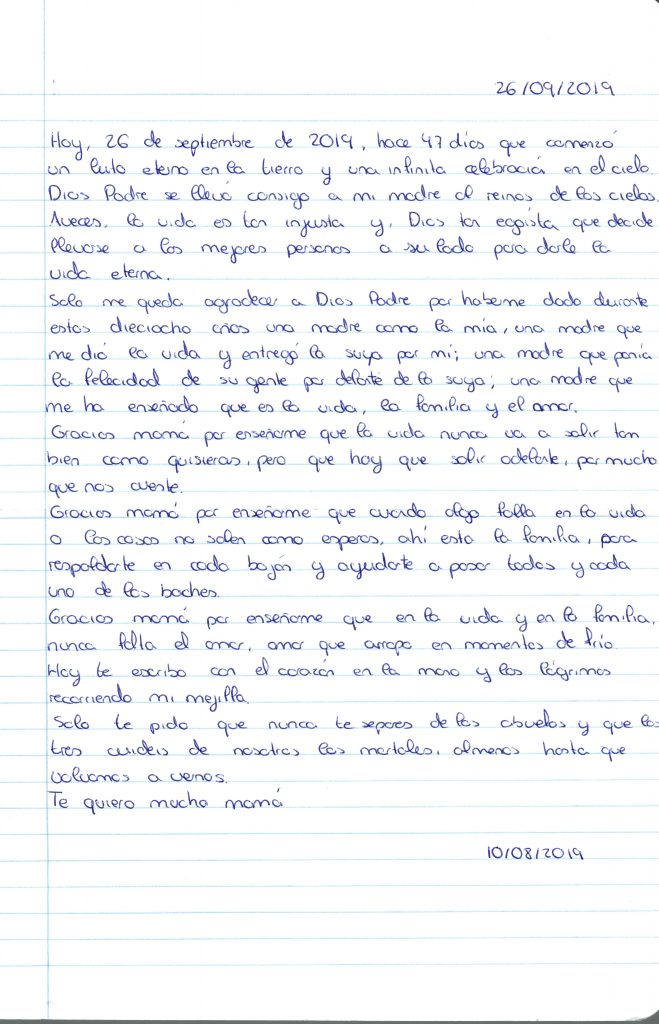 26/09/2019
Hoy, 26 de septiembre de 2019, hace 47 días que comenzó
un luto eterno en la tierra y una infinita celebración en el cielo.
Dios Padre se llevó consigo a mi madre al reinos de los cielos.
Aveces, la vida es tan injusta y, Dios tan egoísta que decide
llevarse a las mejores personas a su lado para darle la
vida eterna.
Solo me queda agradecer a Dios Padre por haberme dado durante
estos dieciocho años una madre como la mía, una madre que
me dió la vida y entregó la suya por mi; una madre que ponía
la felecidad de su gente por delante de la suya; una madre que
me ha enseñado que es la vida, la familia y el amor.
Gracias mamá por enseñarme que la vida nunca va a salir tan
bien como quisieras, pero que hay que salir adelante, por mucho
que nos cueste.
Gracias mamá por enseñarme que cuando algo falla en la vida
o las cosas no salen como esperas, ahí esta la familia, para
respaldarte en cada bajón y ayudarte a pasar todos y cada
uno de los baches.
Gracias mamá por enseñarme que en la vida y en la familia,
nunca falla el amor, amor que arropa en momentos de frío.
Hoy te escribo con el corazón en la mano y las lágrimas
recorriendo mi mejilla.
Solo te pido que nunca te separes de los abuelos y que los
tres cuideis de nosotros los mortales, almenos hasta que
volvamos a vernos.
Te quiero mucho mamá
10/08/2019